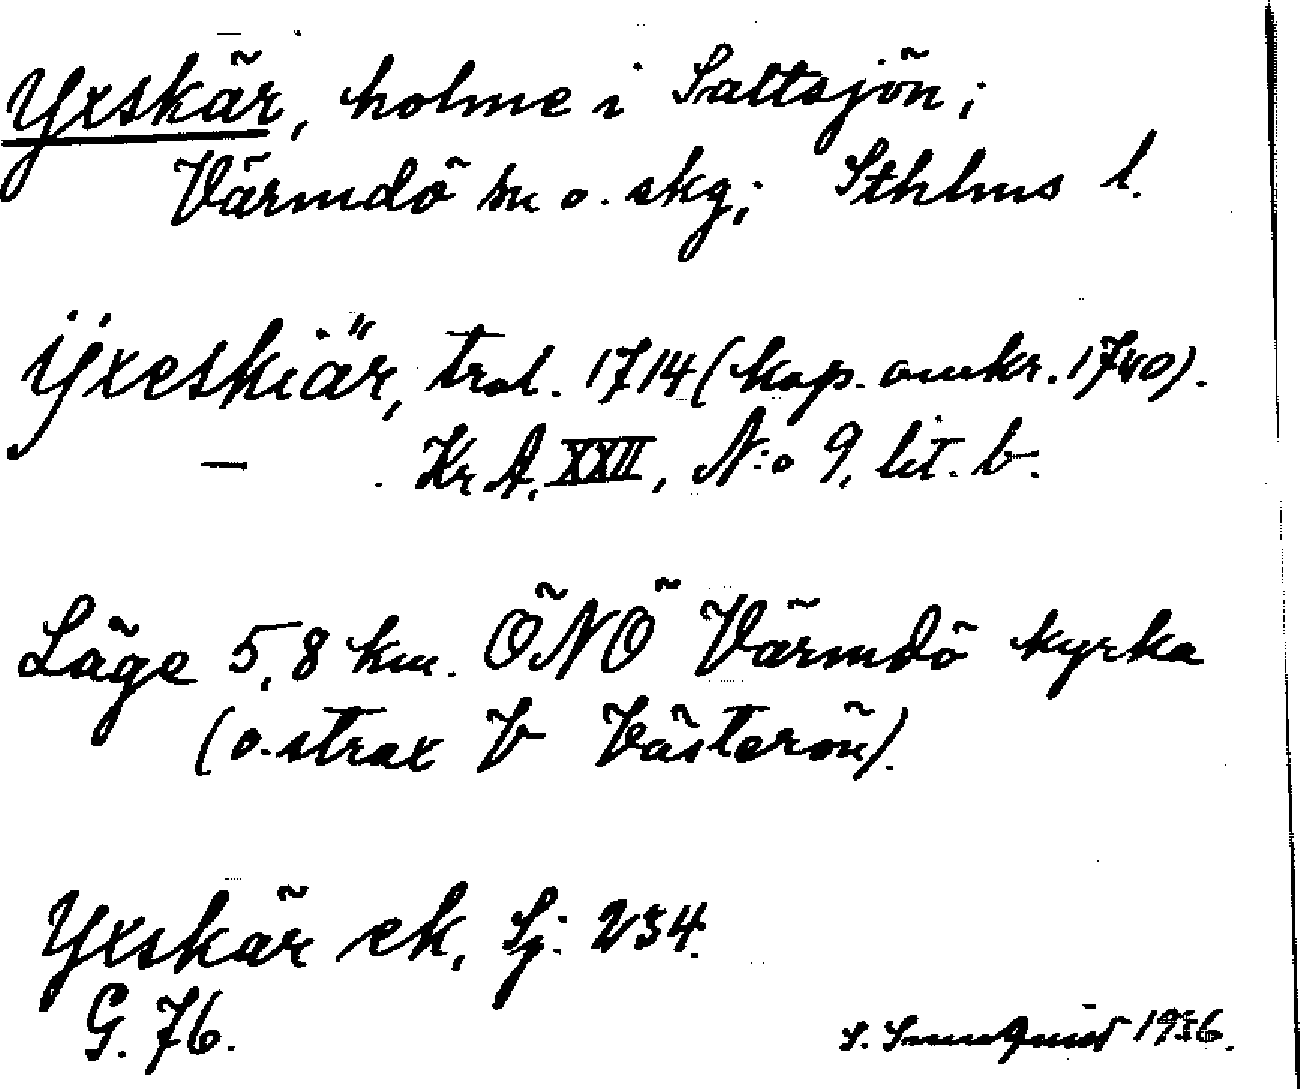 Yxskär, holme i Saltsjön;
Värmdö sn o. skg; Sthlms l.
Ÿxeskiär, trol. 1714 (kop. omkr. 1740).
— Kr A, XXII, N:o 9, lit. b.
Läge 5,8 km. ÖNÖ Värmdö kyrka
(o. strax V Västerön).
Yxskär ek, Sj: 234.
G. 76.
S. 1936.